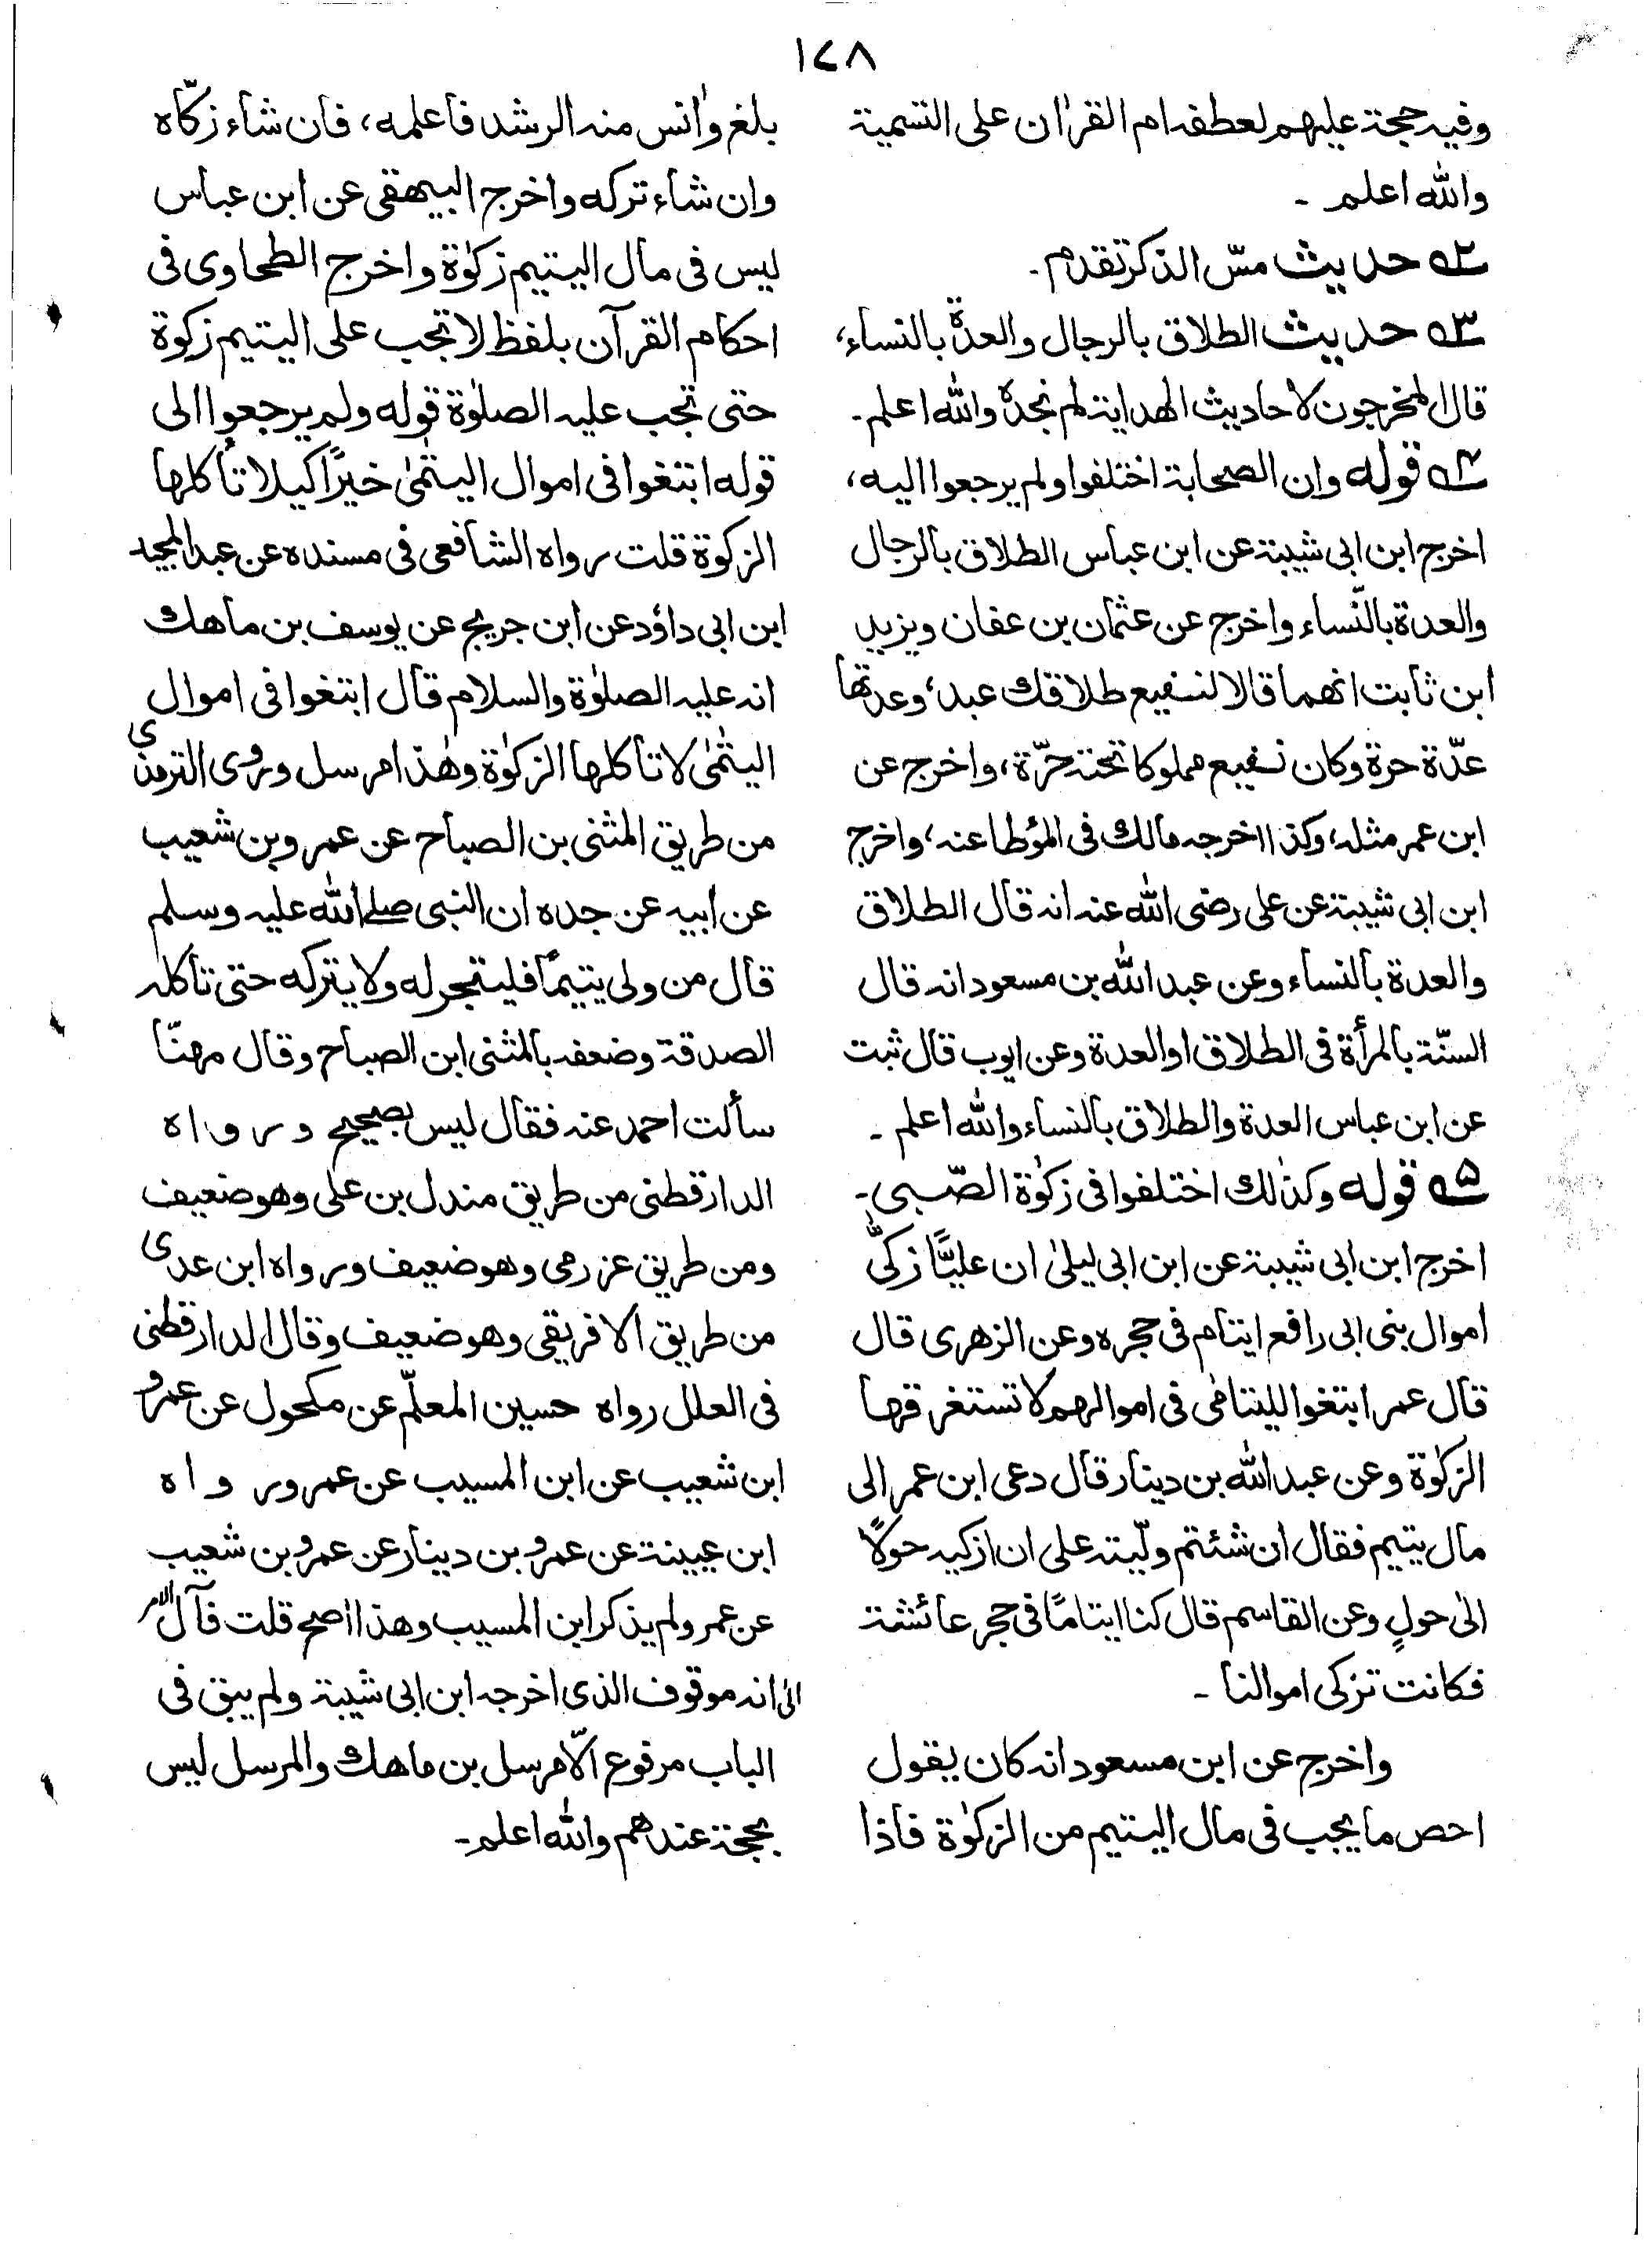 ١٤٨
وفيه حجة عليهم لعطفه ام القراٰن على التسمية
والله اعلم ـ
٢ه حديث مسّ الذكر تقدم ـ
٣ه حديث الطلاق بالرجال والعدة بالنساء،
قال المخرجون لاحاديث الهداية لم نجده والله اعلم ـ
٤ه قوله وان الصحابة اختلفوا ولم يرجعوا اليه،
اخرج ابن ابى شيبة عن ابن عباس الطلاق بالرجال
والعدة بالنّساء واخرج عن عثمان بن عفان ويزيد
ابن ثابت انهما قالا لنفيع طلاقك عبد، وعدتها
عدّة حرة وكان نفيع مملوكا تحته حرّة، واخرج عن
ابن عمر مثله، وكذا اخرجه مالك فى المؤطا عنه، واخرج
ابن ابى شيبة عن على رضى الله عنه انه قال الطلاق
والعدة بالنساء وعن عبد الله بن مسعود انه قال
السنّة بالمرأة فى الطلاق او العدة وعن ايوب قال ثبت
عن ابن عباس العدة والطلاق بالنساء والله اعلم ـ
٥ه قوله وكذٰلك اختلفوا فى زكوٰة الصّبى ـ
اخرج ابن ابى شيبة عن ابن ابى ليلىٰ ان عليًّا زكّى
اموال بنى ابى رافع ايتام فى حجره وعن الزهرى قال
قال عمر ابتغوا لليتامٰى فى اموالهم لا تستغرقها
الزكوٰة وعن عبد الله بن دينار قال دعى ابن عمر الى
مال يتيم فقال ان شئتم وليّته على ان ازكيه حولًا
الىٰ حولٍ وعن القاسم قال كنا ايتامًا فى حجر عائشة
فكانت تزكى اموالنا ـ
واخرج عن ابن مسعود انه كان يقول
احص ما يجب فى مال اليتيم من الزكوٰة فاذا
بلغ واٰنس منه الرشد فاعلمه، فان شاء زكّاه
وان شاء تركه واخرج البيهقى عن ابن عباس
ليس فى مال اليتيم زكوٰة واخرج الطحاوى فى
احكام القرآن بلفظ لا تجب على اليتيم زكوة
حتى تجب عليه الصلوٰة قوله ولم يرجعوا الى
قوله ابتغوا فى اموال اليتمٰى خيرًا كيلا تأكلها
الزكوة قلت رواه الشافعى فى مسنده عن عبد المجيد
ابن ابى داؤد عن ابن جريج عن يوسف بن ماهك
انه عليه الصلوٰة والسلام قال ابتغوا فى اموال
اليتمٰى لا تأكلها الزكوٰة وهٰذا مرسل وروى الترمذى
من طريق المثنى بن الصباح عن عمرو بن شعيب
عن ابيه عن جده ان النبى صلى الله عليه وسلم
قال من ولى يتيمًا فليتجر له ولا يتركه حتى تأكله
الصدقة وضعفه بالمثنى ابن الصباح وقال مهنّا
سألت احمد عنه فقال ليس بصحيح ورواه
الدارقطنى من طريق مندل بن على وهو ضعيف
ومن طريق عزرمى وهو ضعيف ورواه ابن عدى
من طريق الافريقى وهو ضعيف وقال الدارقطنى
فى العلل رواه حسين المعلّم عن مكحول عن عمرو
ابن شعيب عن ابن المسيب عن عمر ورواه
ابن عيينة عن عمرو بن دينار عن عمرو بن شعيب
عن عمر ولم يذكر ابن المسيب وهذا اصح قلت فآل الامر
الىٰ انه موقوف الذى اخرجه ابن ابى شيبة ولم يبق فى
الباب مرفوع الّا مرسل بن ماهك والمرسل ليس
بحجة عندهم والله اعلم ـ